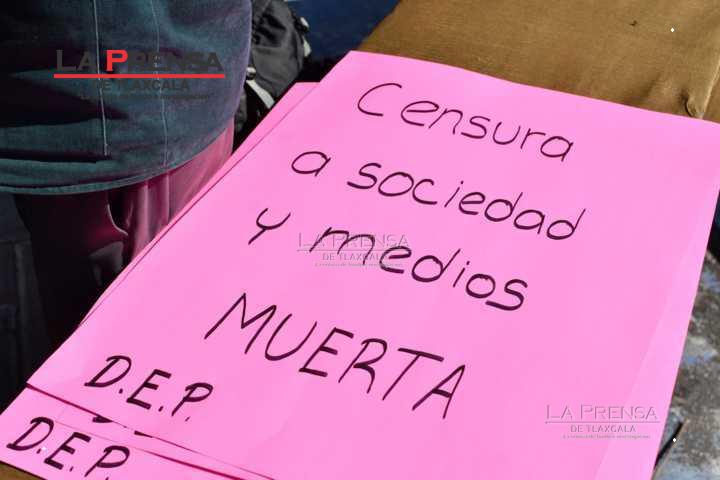 LA PRENSA
DE TLAXCALA
Censura
a sociedad
y medios
MUERTA
LA PRENSA
DE TLAXCALA
D.E.P.
D.E.P.
LA PRENSA
DE TLAXCALA